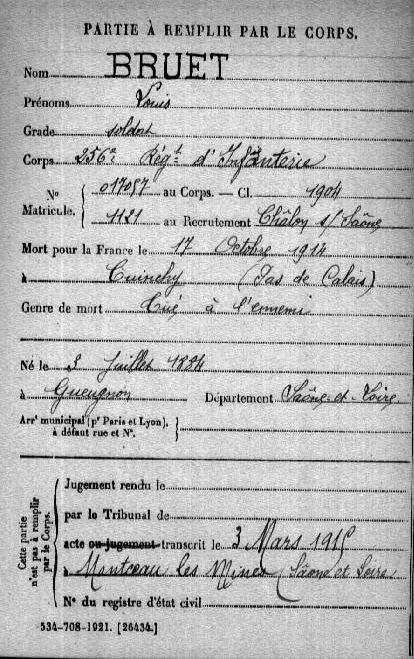 PARTIE À REMPLIR PAR LE CORPS.
Nom BRUET
Prénoms Louis
Grade soldat
Corps 256e Régt d'Infanterie
No Matricule. 017057 au Corps. — Cl. 1904
1121 au Recrutement Châlon s/ Saône
Mort pour la France le 17 Octobre 1914
à Cuinchy (Pas de Calais)
Genre de mort Tué à l'ennemi
Né le 3 Juillet 1884
à Gueugnon Département Saône-et-Loire
Arrt municipal (pr Paris et Lyon),
à défaut rue et N°.
Cette partie
n'est pas à remplir
par le Corps.
Jugement rendu le
par le Tribunal de
acte ou jugement transcrit le 3 Mars 1915
à Montceau les Mines (Saône et Loire
N° du registre d'état civil
534-708-1921. [26434.]